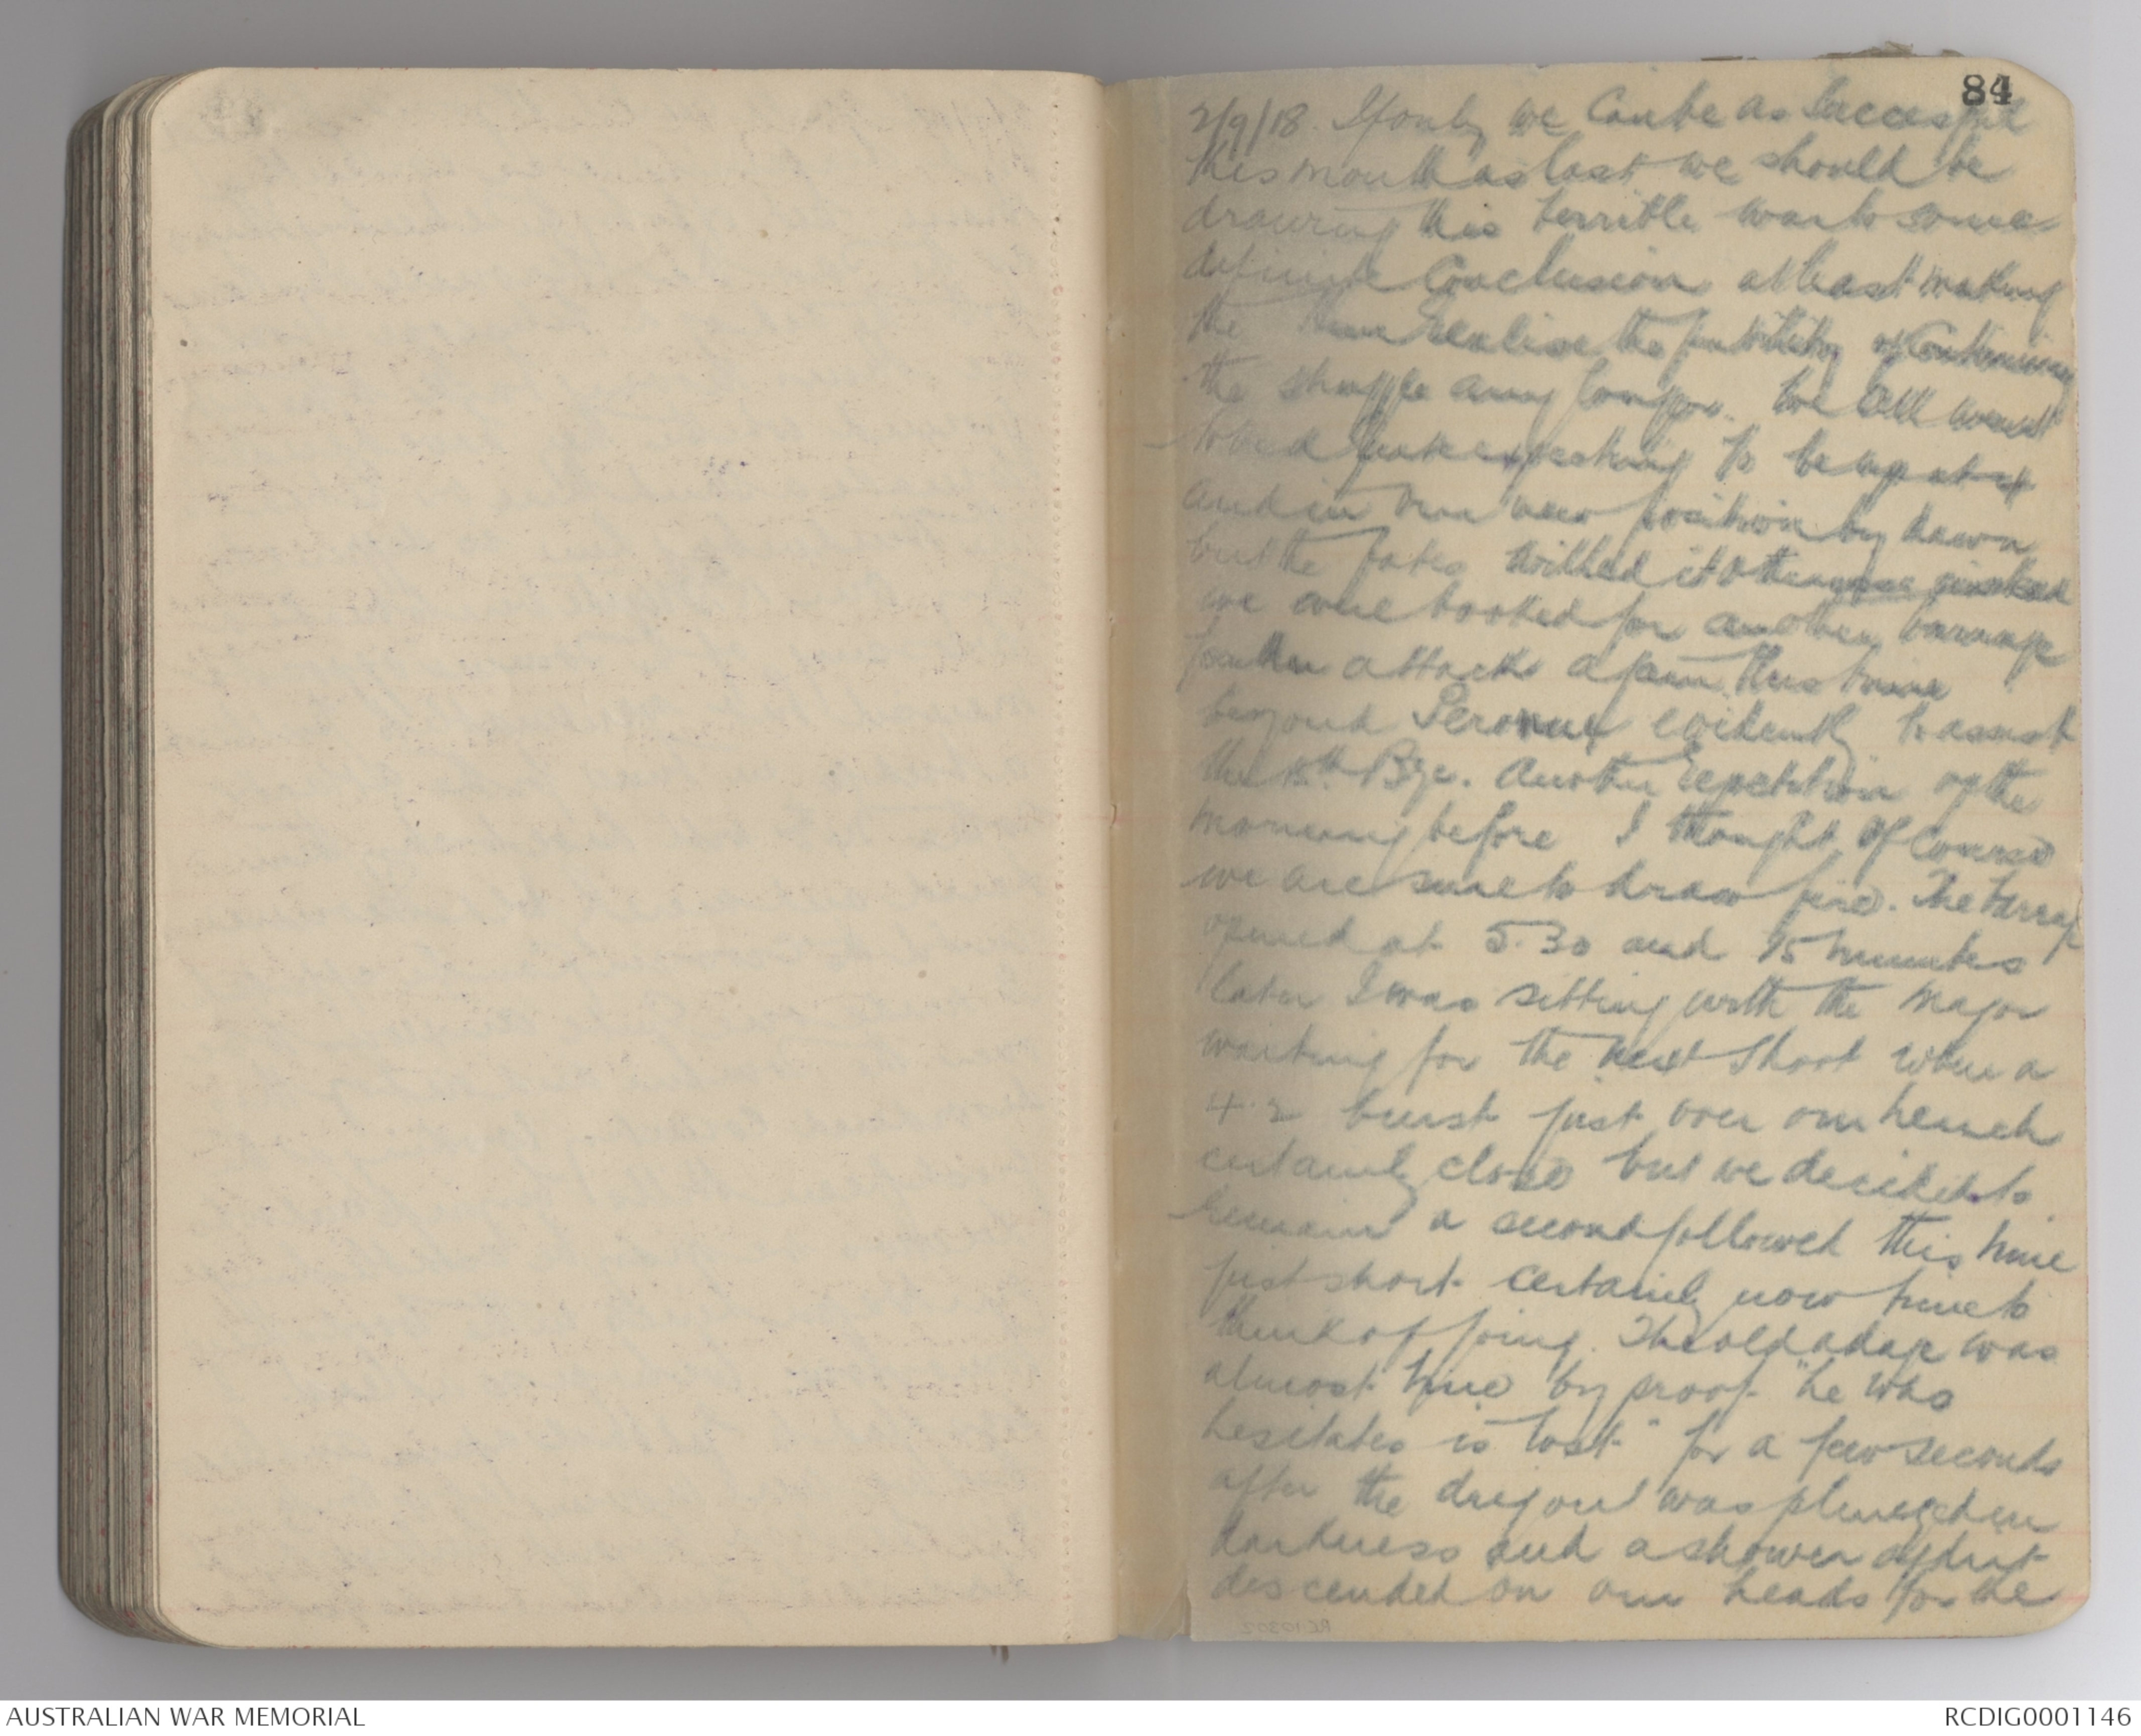 84
2/9/18. If only we can be as successful
this month as last we should be
drawing this terrible war to some
definite conclusion at least making
the Hun realise the futility of continuing
the struggle any longer. We all went
to bed quite expecting to be up at 4
and in our new position by dawn
but the fates willed it otherwise instead
we were booked for another barrage
for the attack again this time
beyond Peronne evidently to assist
the 15th. Bge. Another repetition of the
morning before I thought of course
we are sure to draw fire. The barrage
opened at 5.30 and 15 minutes
later I was sitting with the Major
waiting for the next shoot when a
4.2 burst just over our trench
certainly close but we decided to
remain a second followed this time
just short certainly now time to
think of going. The old adage was
almost true by proof "he who
hesitates is lost" for a few seconds
after the dugout was plunged in
darkness and a shower of dirt
descended on our heads for the
RC10302
AUSTRALIAN WAR MEMORIAL
RCDIG0001146